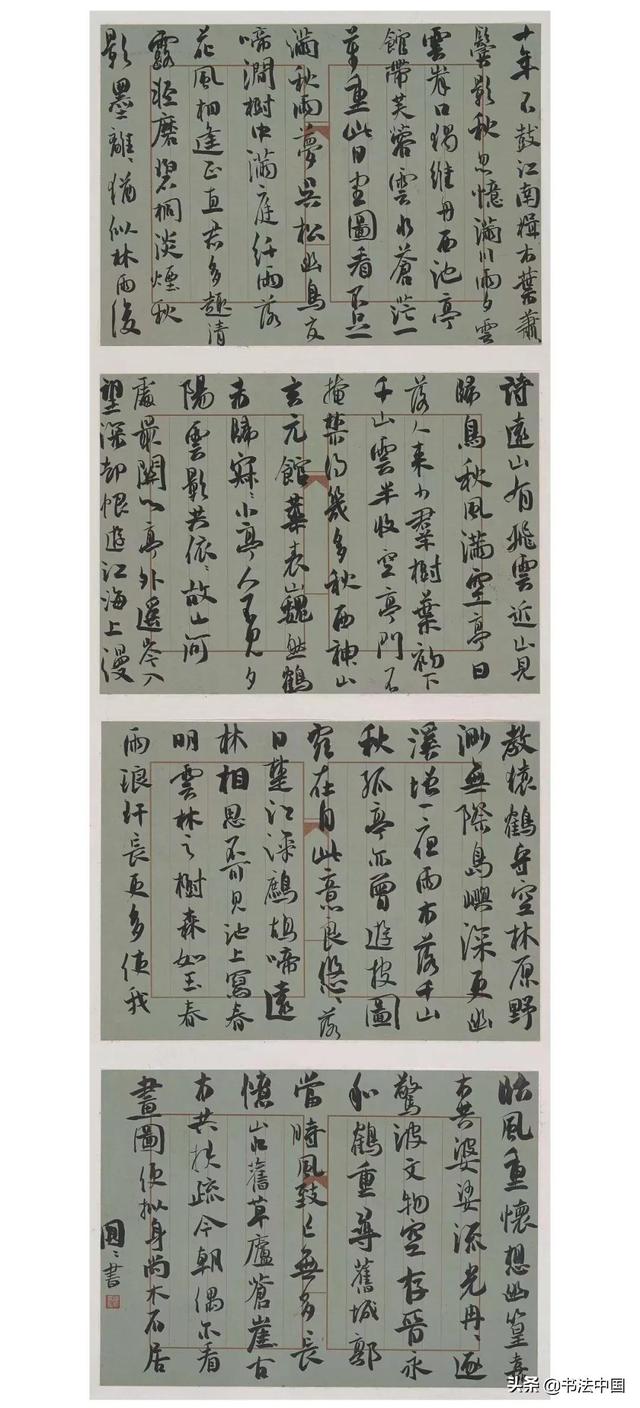 十年不鼓江南楫木葉蕭
鬢影秋忽憶滿川雨夕雲
雲岸口獨維舟西池亭
館帶芙蓉雲水蒼茫一
萬重此日畫圖看不足
滿秋雨夢吳松幽鳥友
啼澗樹中滿庭纤雨落
花風相逢正直君多趣清
露輕磨碧桐淡煙秋
影墨離離猶似林雨後
詩遠山有飛雲近山見
歸鳥秋風滿空亭日
落人來少翠樹葉初下
千山雲半收空亭門不
掩禁得幾多秋西神山
玄元館華表巍然鶴
未歸寂寂小亭人不見夕
陽雲影共依依故山何
處最關心亭外遥岑入
望深却恨遊江海上漫
教猿鶴守空林原野
渺無際島嶼深更幽
溪增一夜雨木落千山
秋孤亭亦曾遊披圖
宛在目此意良悠悠落
日楚江深鷓鴣啼遠
林相思不可見池上寫春
明雲林之樹森如玉春
雨琅玕長更多使我
臨風重懷想幽篁嘉
木共婆娑流光冉冉逐
驚波文物空存晉永
和鶴重尋舊城郭
當時風致已無多長
憶山中舊草廬蒼崖古
木共扶疏今朝偶尔看
畫圖便拟身尚木石居
圆圆書
头条 @书法中国